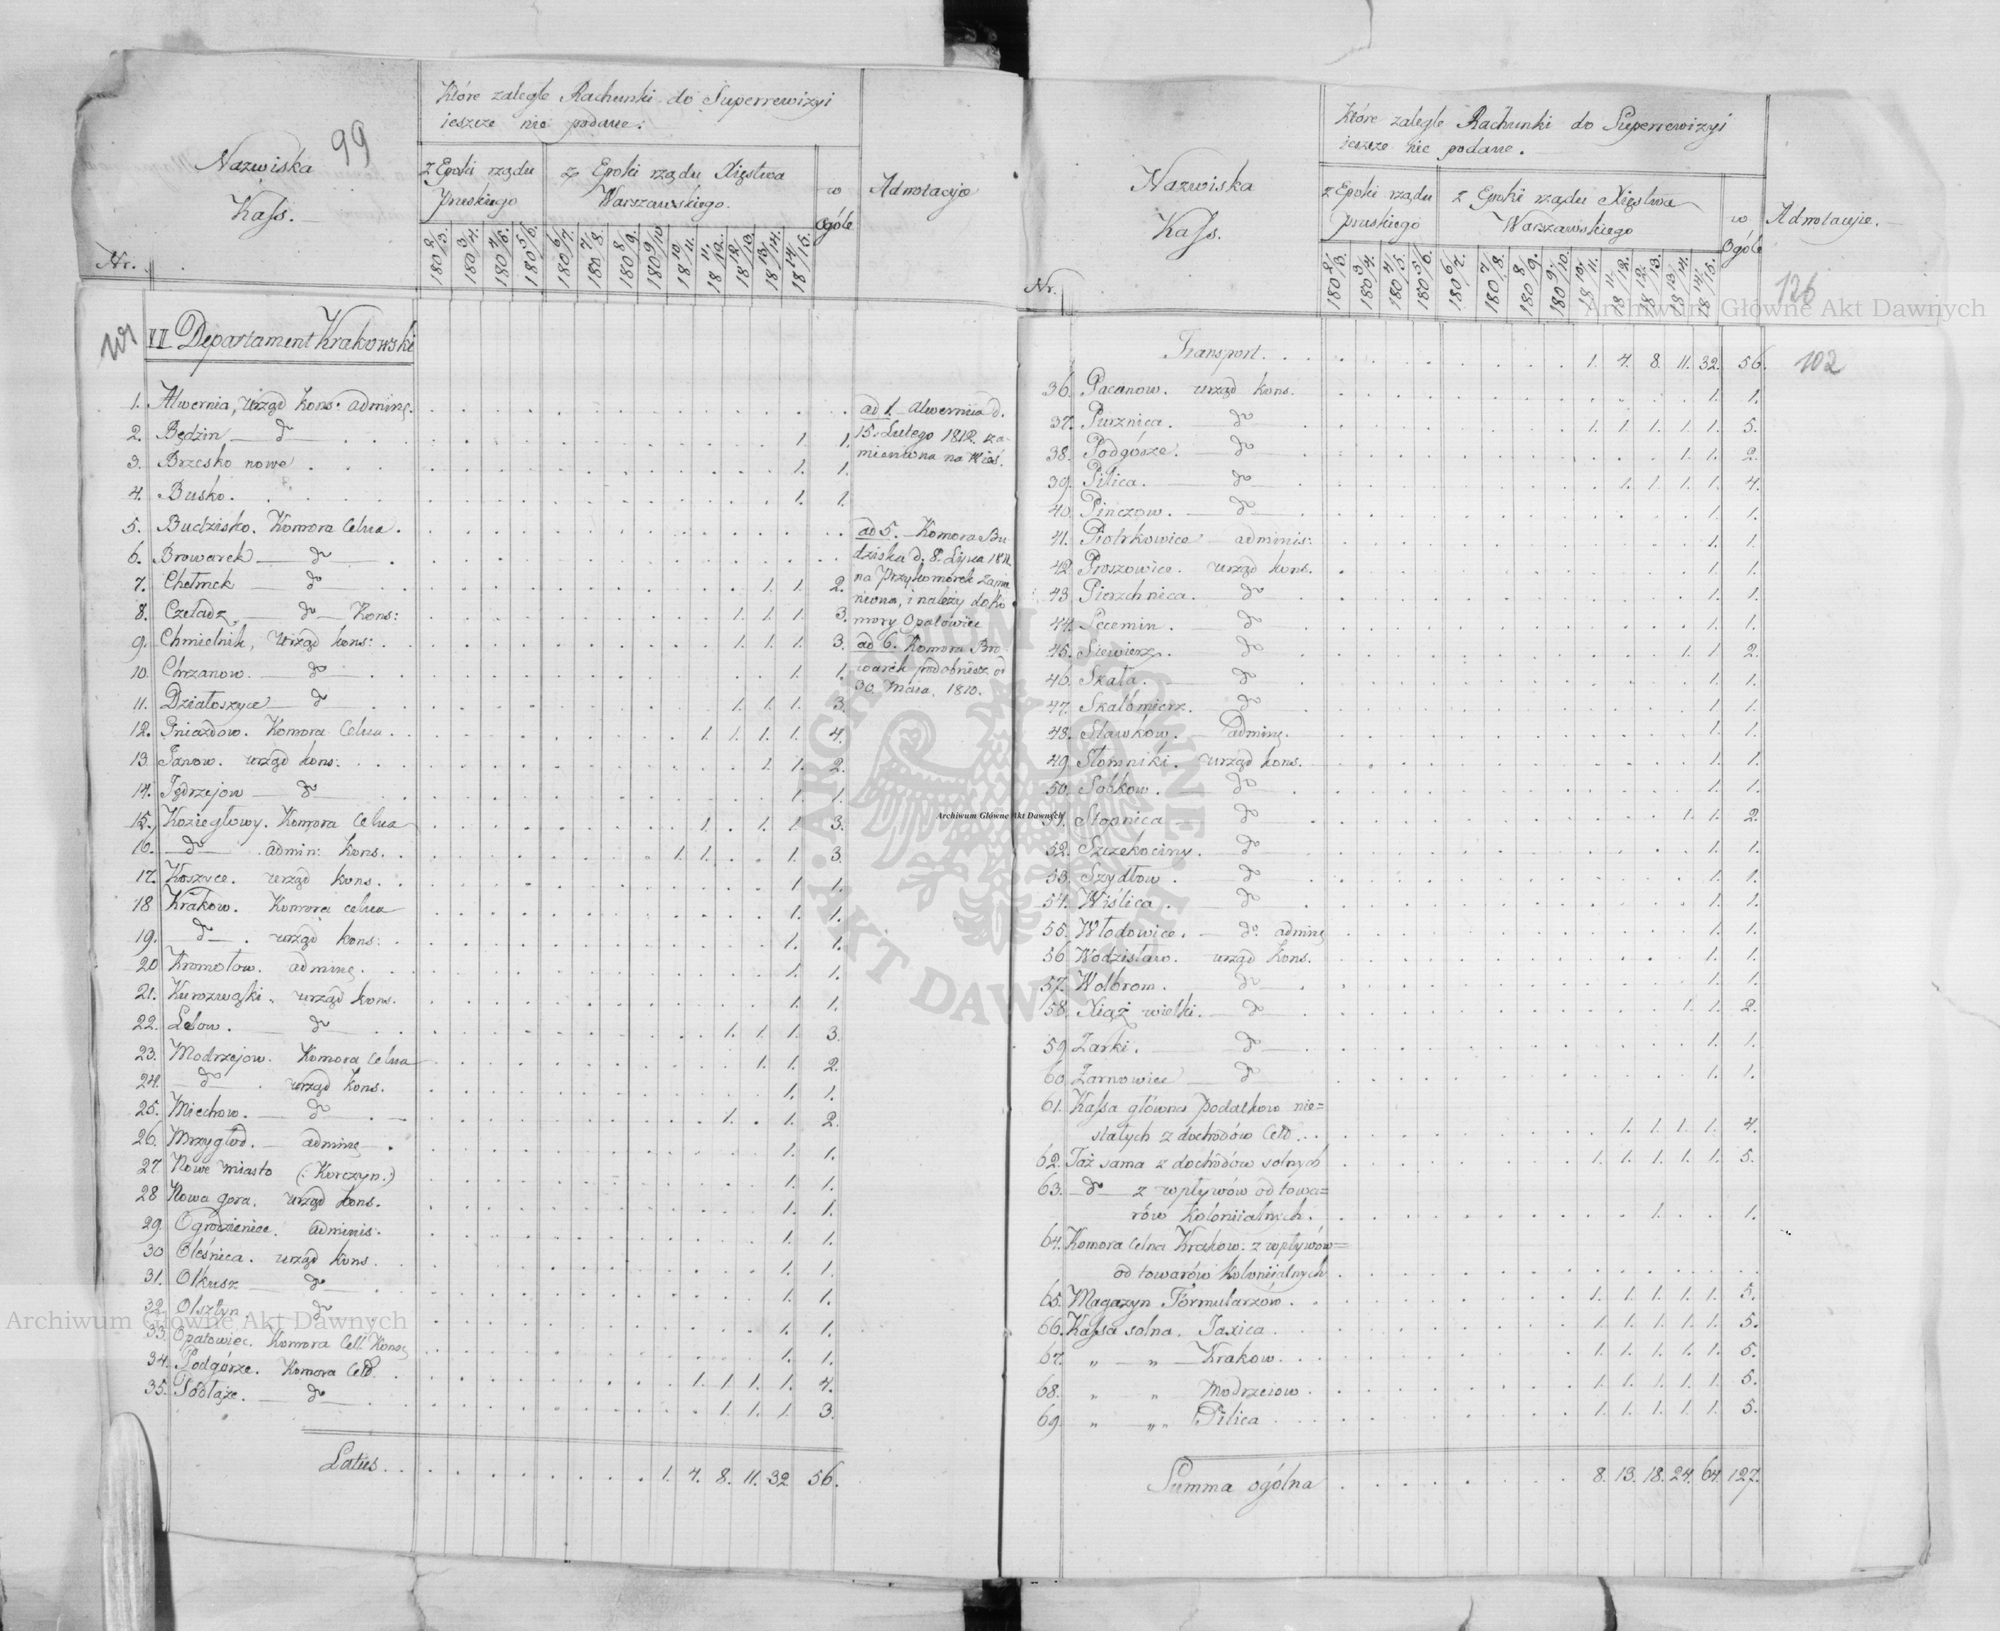 99
Nazwiska
Kass.
Nr.
Które zaległe Rachunki do Superrewizyi
ieszcze nie podane.
z Epoki rządu
Pruskiego
z Epoki rządu Xięstwa
Warszawskiego.
w
Ogóle
Adnotacyje
180 2/3. 180 3/4. 180 4/5. 180 5/6. 180 6/7. 180 7/8. 180 8/9. 180 9/10 18 10/11. 18 11/12. 18 12/13. 18 13/14. 18 14/15.
II Departament Krakowski
1. Alwernia, Urząd Kons. adminę.
2. Będzin — do — 1. 1.
3. Brzesko nowe. 1. 1.
4. Busko. 1. 1.
5. Budzisko. Komora Celna.
6. Browarek — do —
7. Chełmek — do 1. 1. 2.
8. Czeladz, — do — Kons: 1. 1. 1. 3.
9. Chmielnik, Urząd kons: 1. 1. 1. 3.
10. Chrzanow. — do — 1. 1.
11. Działoszyce — do 1. 1. 1. 3.
12. Gniazdow. Komora Celna. 1. 1. 1. 1. 4.
13. Janow. urząd kons: 1. 1. 2.
14. Jędrzejow — do — 1. 1.
15. Koziegłowy. Komora Celna 1. 1. 1. 3.
16. — do — admin: kons. 1. 1. 1. 3.
17. Koszyce. urząd kons. 1. 1.
18 Krakow. Komora celna 1. 1.
19. do — urząd kons: 1. 1.
20 Kromołow. adminę. 1. 1.
21. Kurozwąki. urząd kons. 1. 1.
22. Lelow. — do — 1. 1. 1. 3.
23. Modrzejow. Komora Celna 1. 1. 2.
24. — do — urząd kons. 1. 1.
25. Miechow. — do — 1. 1. 2.
26. Mrzygłod. — adminę. 1. 1.
27. Nowe miasto (: Korczyn :) 1. 1.
28 Nowa gora. urząd kons. 1. 1.
29. Ogrodzieniec. adminis: 1. 1.
30 Oleśnica. urząd kons. 1. 1.
31. Olkusz — do — 1. 1.
32. Olsztyn — do — 1. 1.
33. Opatowiec. Komora Cell. Kons 1. 1.
34. Podgórze. Komora Cell. 1. 1. 1. 1. 4.
35. Podłęże. — do — 1. 1. 1. 3.
Latus. 1. 4. 8. 11. 32 56.
ad 1. Alwernia d.
15. Lutego 1812. za-
mieniona na Wieś.
ad 5. Komora Bu
dziska d. 8. Lipca 1811
na Przykomorek zamie
niona, i należy do Ko
mory Opatowiec
ad 6. Komora Bro
warek podobnież od
30 Maia. 1810.
Nazwiska
Kass.
Nr.
Które zaległe Rachunki do Superrewizyi
ieszcze nie podane.
z Epoki rządu
pruskiego
z Epoki rządu Xięstwa
Warszawskiego
w
Ogóle
Adnotacyie.
180 2/3. 180 3/4. 180 4/5. 180 5/6. 180 6/7. 180 7/8. 180 8/9. 180 9/10. 18 10/11. 18 11/12. 18 12/13. 18 13/14. 18 14/15.
126
Transport. 1. 4. 8. 11. 32. 56.
102
36. Pacanow. urząd kons. 1. 1.
37. Purznica. — do 1. 1. 1. 1. 1. 5.
38. Podgórze. — do 1. 1. 2.
39. Pilica. — do 1. 1. 1. 1. 4.
40. Pinczow. — do 1. 1.
41. Piotrkowice adminis: 1. 1.
42. Proszowice. urząd kons. 1. 1.
43. Pierzchnica. do 1. 1.
44. Secemin. — do 1. 1.
45. Siewierz. do 1. 1. 2.
46. Skała. — do 1. 1.
47. Skalbmierz. do 1. 1.
48. Sławków. adminę. 1. 1.
49 Słomniki. urząd kons. 1. 1.
50. Sobkow. — do 1. 1.
51. Stopnica — do 1. 1. 2.
52. Szczekociny. — do 1. 1.
53. Szydłow. — do 1. 1.
54. Wiślica. — do 1. 1.
55. Włodowice. — do. adminę 1. 1.
56 Wodzisław. urząd kons. 1. 1.
57. Wolbrom. — do — 1. 1.
58. Xiąż wielki. — do 1. 1. 2.
59 Zarki. — do — 1. 1.
60 Zarnowiec — do 1. 1.
61. Kassa główna podatkow nie=
stałych z dochodów Celł. 1. 1. 1. 1. 4.
62. Taż sama z dochodów solnych 1. 1. 1. 1. 1. 5.
63. — do — z wpływów od towa=
rów Koloniialnych. 1. 1.
64. Komora Celna Krakow: z wpływów=
od towarów Koloniialnych
65. Magazyn Formularzów. 1. 1. 1. 1. 1. 5.
66. Kassa solna. Jaxica. 1. 1. 1. 1. 1. 5.
67. „ — „ — Krakow. 1. 1. 1. 1. 1. 5.
68. „ „ Modrzeiow. 1. 1. 1. 1. 1. 5.
69. „ — „ Pilica 1. 1. 1. 1. 1. 5.
Summa ogólna 8. 13. 18. 24. 64. 127.
Archiwum Główne Akt Dawnych
Archiwum Główne Akt Dawnych
Archiwum Główne Akt Dawnych
ARCHIWUM GŁÓWNE AKT DAWNYCH